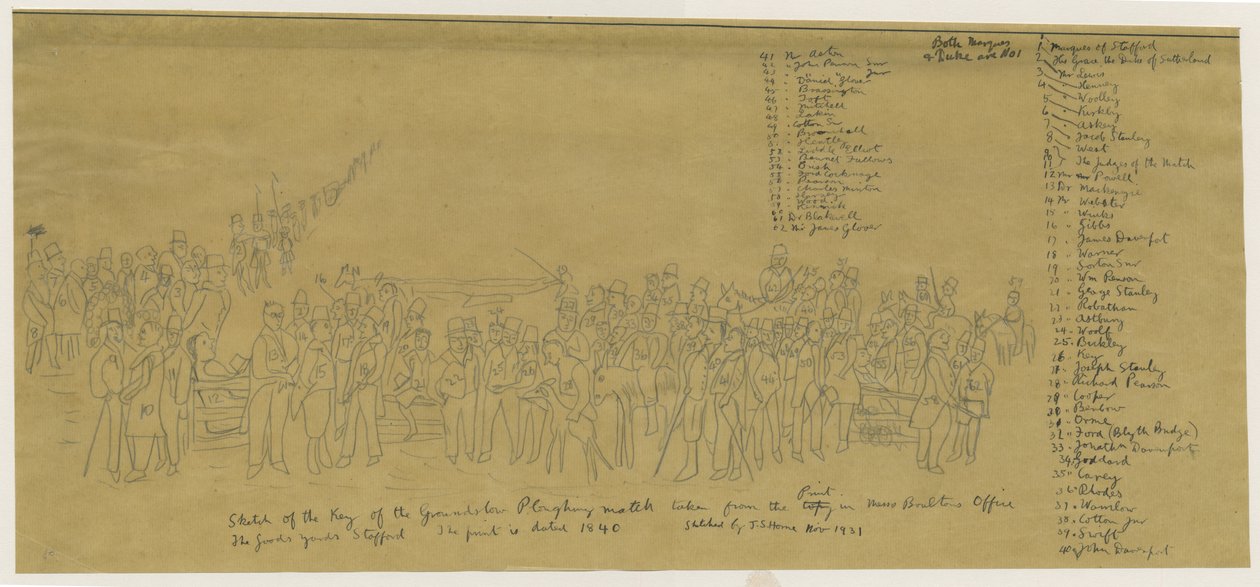 Both Marques
& Duke are No 1
1 Marques of Stafford
2 His Grace the Duke of Sutherland
3 Mr Lewis
4 " Henney
5 " Woolley
6 " Kirkby
7 " Askey
8 " Jacob Stanley
9 " West
10
11 } The Judges of the Match
12 Mr Powell
13 Dr Mackenzie
14 Mr Webster
15 " Winks
16 " Gibbs
17 " James Davenport
18 " Warner
19 " Sorton Snr
20 " Wm Pearson
21 " George Stanley
22 " Robotham
23 " Astbury
24 " Woolf
25 " Buckley
26 " Key
27 " Joseph Stanley
28 " Richard Pearson
29 " Cooper
" Benbow
31 " Orme
32 " Ford (Blyth Bridge)
33 " Jonathan Davenport
34 " Goddard
35 " Carey
36 " Rhodes
37 " Wamlow
38 " Cotton Jnr
39 " Swift
40 " John Davenport
41 Mr Acton
42 " John Pearson Snr
43 " " " Jnr
44 " Daniel Glover
45 " Brassington
46 " Toft
47 " Mitchell
48 " Lakin
49 " Cotton Snr
50 " Broomhall
51
52 " Elliot
53 " Bennet Fallows
54 " Bush
55 " Cocknage
56 " Pearson
57 " Charles Minton
58 " Harvey
59 " Wood
60
61 Dr Blakewell
62 Mr James Glover
Sketch of the Key of the Groundslow Ploughing match taken from the Print in Messrs Boultons Office
The Goods yards Stafford The print is dated 1840 Sketched by J. S. Horne Nov 1931